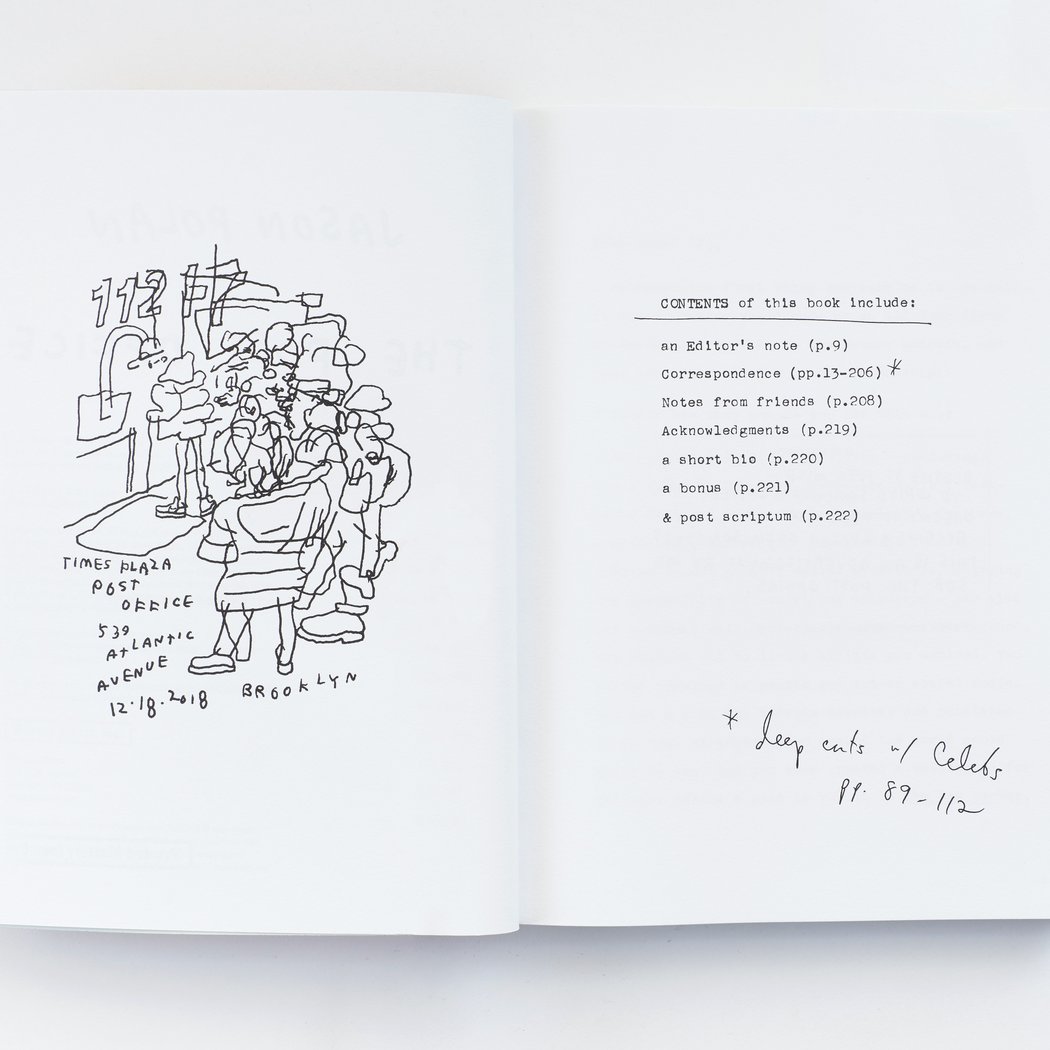 112
TIMES PLAZA
POST
OFFICE
539
ATLANTIC
AVENUE
12.18.2018
BROOKLYN
CONTENTS of this book include:
an Editor's note (p.9)
Correspondence (pp.13-206) *
Notes from friends (p.208)
Acknowledgments (p.219)
a short bio (p.220)
a bonus (p.221)
& post scriptum (p.222)
* deep cuts w/ Celebs
pp. 89-112